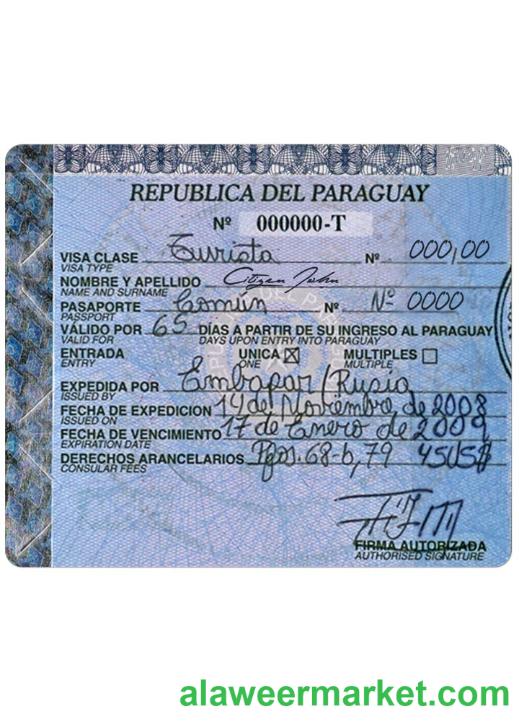 REPUBLICA DEL PARAGUAY
Nº 000000-T
VISA CLASE Turista Nº 000,00
VISA TYPE
NOMBRE Y APELLIDO Citizen John
NAME AND SURNAME
PASAPORTE Común Nº Nº 0000
PASSPORT
VÁLIDO POR 65 DÍAS A PARTIR DE SU INGRESO AL PARAGUAY
VALID FOR DAYS UPON ENTRY INTO PARAGUAY
ENTRADA UNICA ☒ MULTIPLES ☐
ENTRY ONE MULTIPLE
EXPEDIDA POR Embapar/Rusia
ISSUED BY
FECHA DE EXPEDICION 14 de Noviembre de 2008
ISSUED ON
FECHA DE VENCIMIENTO 17 de Enero de 2009
EXPIRATION DATE
DERECHOS ARANCELARIOS 68-b, 79 45US$
CONSULAR FEES
FIRMA AUTORIZADA
AUTHORISED SIGNATURE
alaweermarket.com